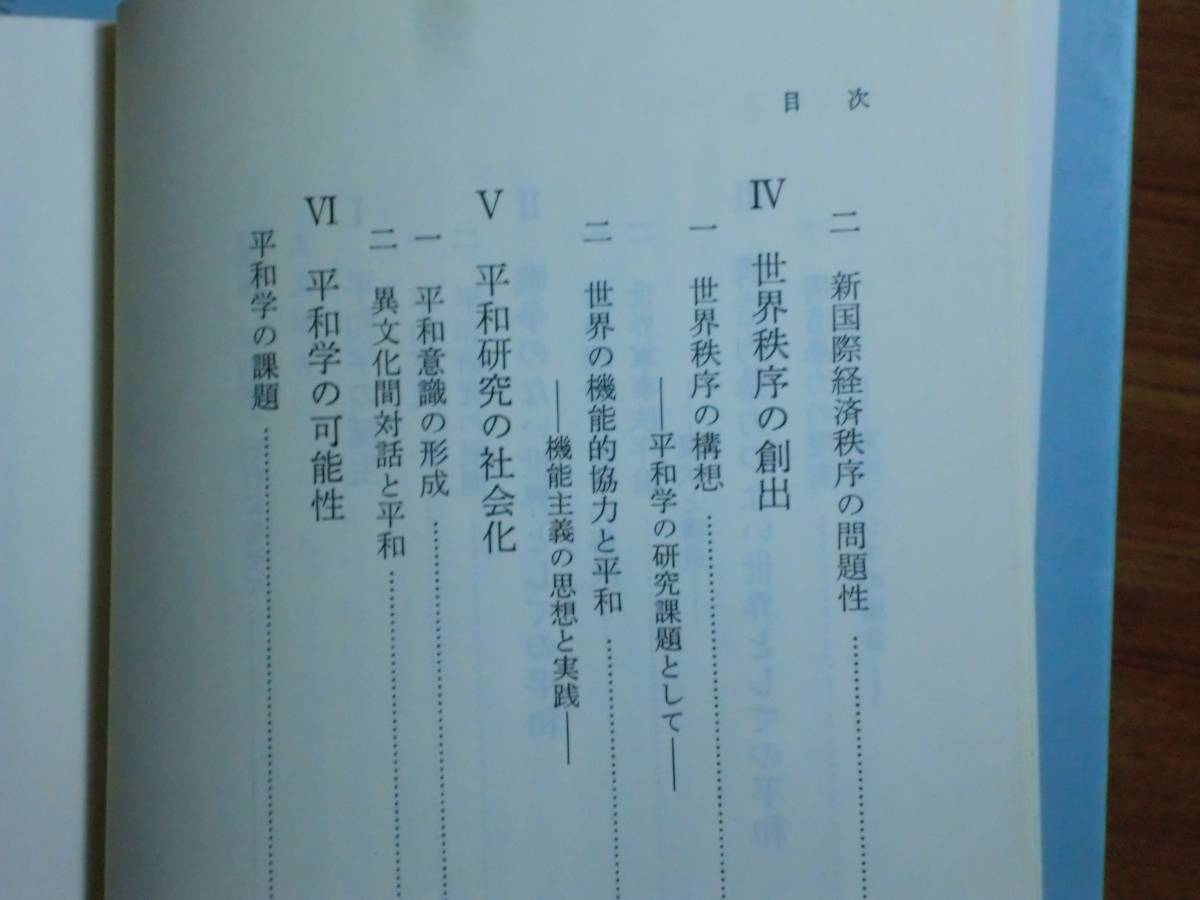 目次
二 新国際経済秩序の問題性 ……………
Ⅳ 世界秩序の創出
一 世界秩序の構想 ……………
――平和学の研究課題として――
二 世界の機能的協力と平和 ……………
――機能主義の思想と実践――
Ⅴ 平和研究の社会化
一 平和意識の形成 ……………
二 異文化間対話と平和 ……………
Ⅵ 平和学の可能性
平和学の課題 ……………